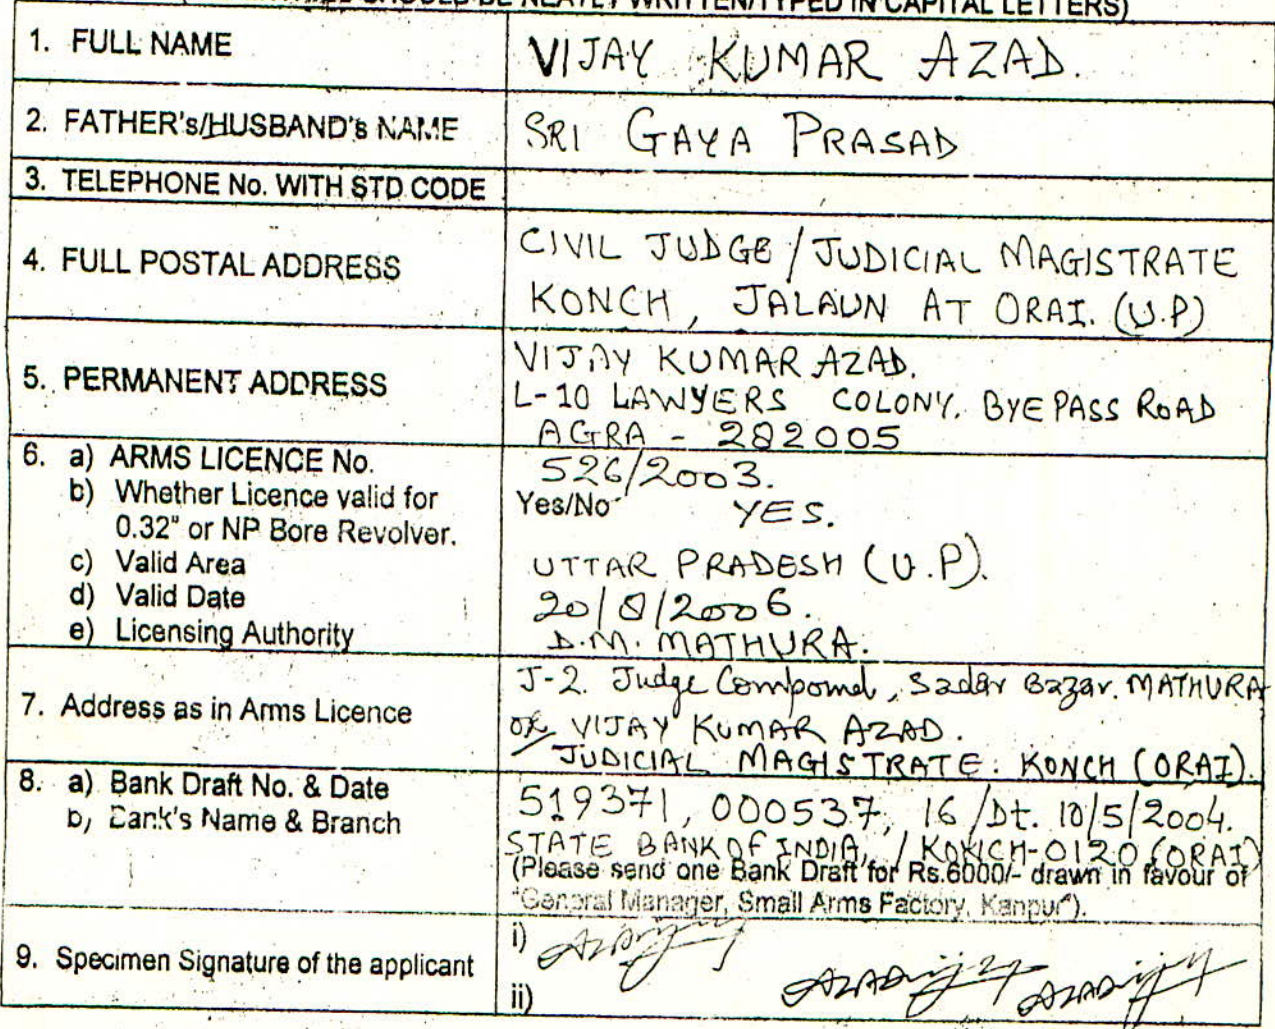 SHOULD BE NEATLY WRITTEN/TYPED IN CAPITAL LETTERS)
1. FULL NAME
VIJAY KUMAR AZAD.
2. FATHER's/HUSBAND's NAME
SRI GAYA PRASAD
3. TELEPHONE No. WITH STD CODE
4. FULL POSTAL ADDRESS
CIVIL JUDGE / JUDICIAL MAGISTRATE
KONCH, JALAUN AT ORAI. (U.P)
5. PERMANENT ADDRESS
VIJAY KUMAR AZAD.
L-10 LAWYERS COLONY. BYEPASS ROAD
AGRA - 282005
6. a) ARMS LICENCE No.
526/2003.
b) Whether Licence valid for
0.32" or NP Bore Revolver.
Yes/No YES.
c) Valid Area
UTTAR PRADESH (U.P).
d) Valid Date
20/8/2006.
e) Licensing Authority
D.M. MATHURA.
7. Address as in Arms Licence
J-2. Judge Compound, Sadar Bazar. MATHURA
or VIJAY KUMAR AZAD.
JUDICIAL MAGISTRATE. KONCH (ORAI).
8. a) Bank Draft No. & Date
519371, 000537, 16 /Dt. 10/5/2004.
b) Bank's Name & Branch
STATE BANK OF INDIA, / KONCH-0120 (ORAI)
(Please send one Bank Draft for Rs.6000/- drawn in favour of
"General Manager, Small Arms Factory, Kanpur").
9. Specimen Signature of the applicant
i)
ii)